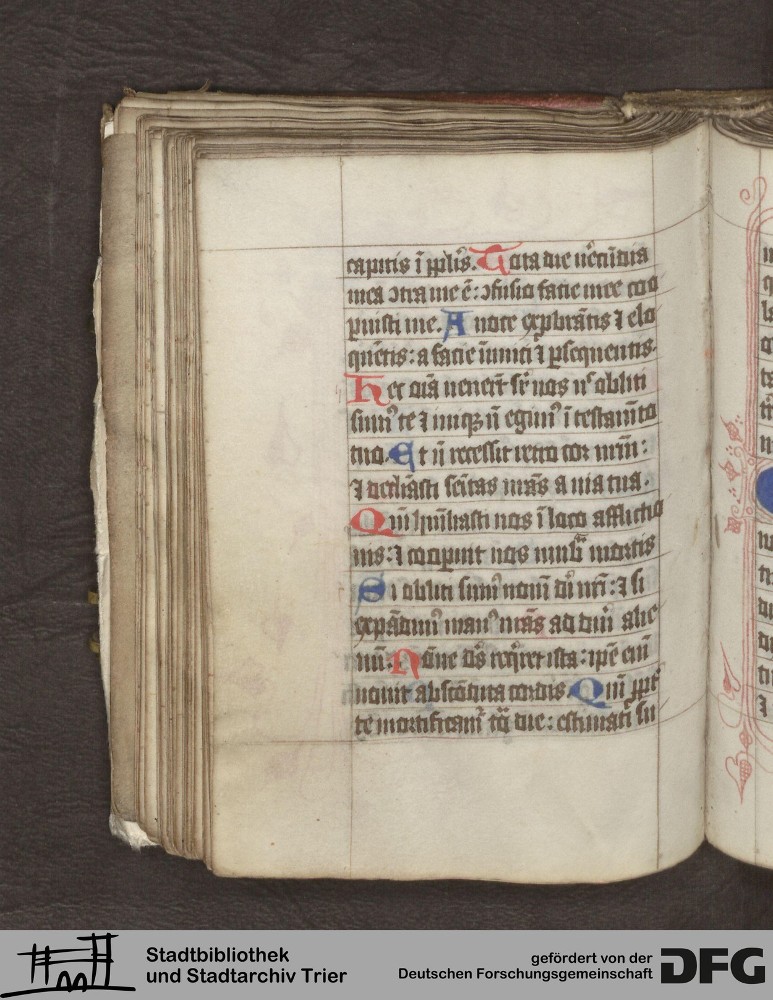 capitis ī pplīs. Tota die v̄ecūdia
mea ↄtra me ē: ↄfusio faciē mee coo
peruisti me. A uoce exp̱brātis ⁊ oblo
quētis: a facie īimici ⁊ ꝑsequentis.
Hec oīa venerūt sup̱ nos n̄ obliti
sumꝰ te ⁊ inique n̄ egimꝰ ī testam̄to
tuo. Et n̄ recessit retro cor nr̄m:
⁊ declīasti semitas nr̄as a via tua.
Qm̄ hūiliasti nos ī loco afflictio
nis: ⁊ cooperuit nos umbra mortis
Si obliti sumꝰ nomē dī nr̄i: ⁊ si
expādimꝰ manꝰ nr̄as ad deū alie
nū. Nōne dš reqͥret ista: ipē em̄
nouit abscōdita cordis. Qm̄ ppt̄
te mortificamr̄ tota die: estimati su
Stadtbibliothek
und Stadtarchiv Trier
gefördert von der
Deutschen Forschungsgemeinschaft
DFG